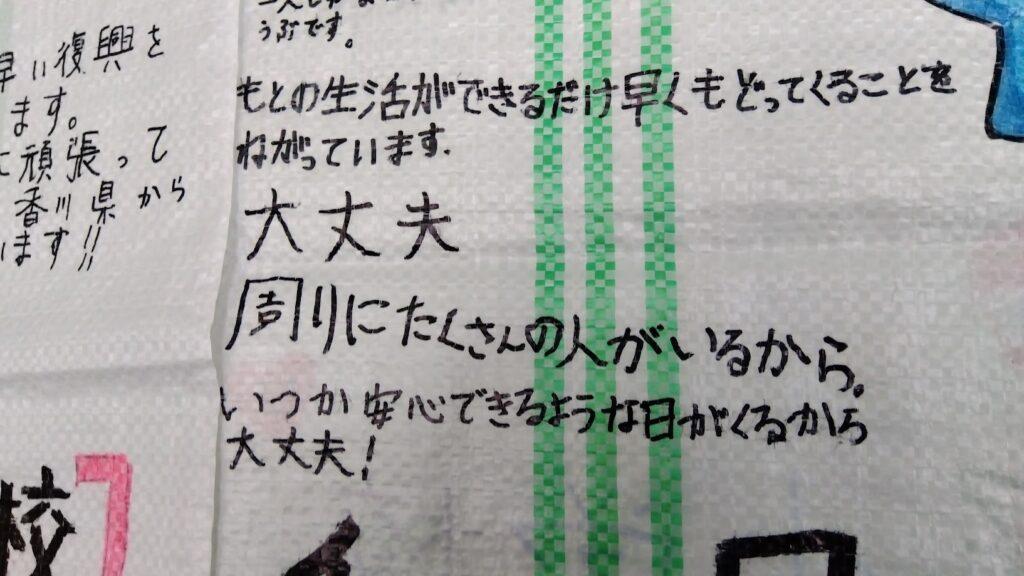 早い復興を
ます。
頑張って
香川県から
ます!!
うぶです。
もとの生活ができるだけ早くもどってくることを
ねがっています.
大丈夫
周りにたくさんの人がいるから。
いつか安心できるような日がくるから
大丈夫!
校